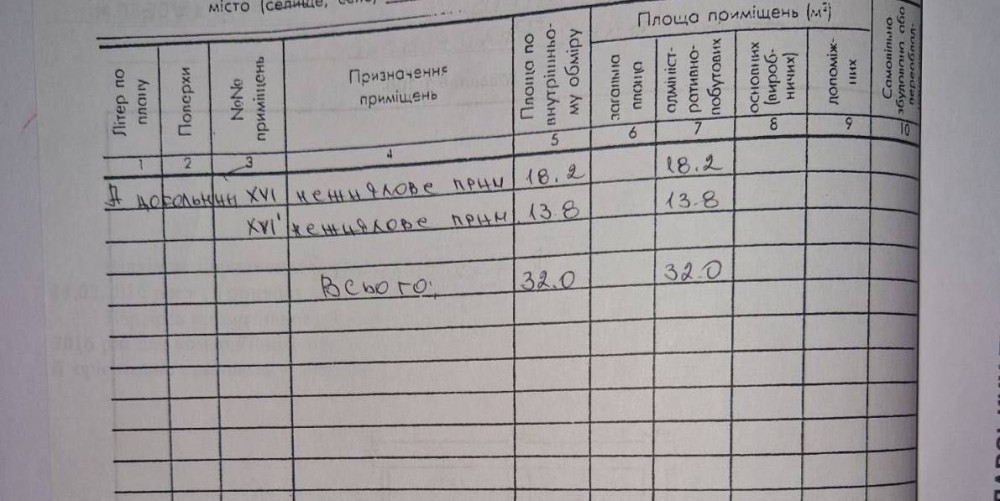 місто (селище, село)
Площа приміщень (м²)
Літер по плану
Поверхи
№№ приміщень
Призначення приміщень
Площа по внутрішньо-му обміру
загальна площа
адмініст-ративно-побутових
основних (вироб-ничих)
допоміж-них
Самовільно збудована або переоблад.
1 2 3 4 5 6 7 8 9 10
А цокольний XVI нежилове прим 18.2 18.2
XVI' нежилове прим. 13.8 13.8
Всього: 32.0 32.0